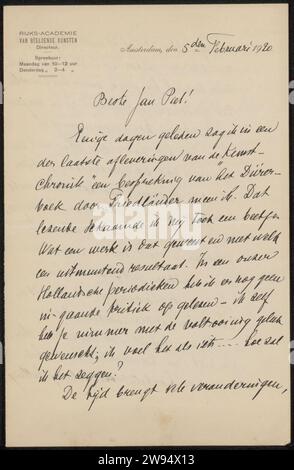 RIJKS-ACADEMIE
VAN BEELDENDE KUNSTEN
Directeur.
Spreekuur:
Maandag van 10–12 uur
Donderdag „ 2–4 „
Amsterdam, den 5den Februari 1920
Beste Jan Piet!
Eenige dagen geleden zag ik in een
der laatste afleveringen van de "Kunst-
chronik" een bespreking van het Dürer-
boek door Friedländer meen ik. Dat
lezende schaamde ik mij toch een beetje.
Wat een werk is dat geweest en met welk
een uitmuntend resultaat. In een onzer
Hollandsche periodieken heb ik er nog geen
in-gaande kritiek op gelezen – ik zelf
heb je nimmer met de voltooiing geluk
gewenscht; ik voel het als iets .... hoe zal
ik het zeggen?
De tijd brengt vele veranderingen,
alamy
Image ID: 2W94X13
www.alamy.com